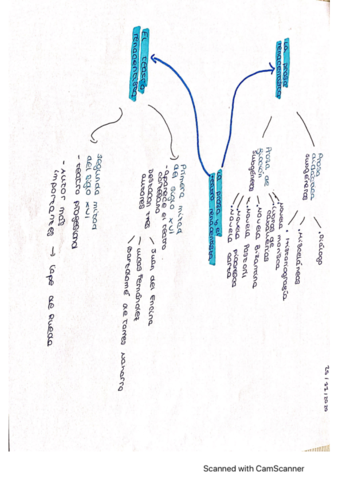 LA PROSA Y EL
TEATRO RENACENTISTA
LA PROSA
RENACENTISTA
Prosa
didáctica
subgéneros
- Diálogo
- Misceláneas
- Historiografía
Prosa de
ficción
subgéneros
- Libros de caballerías
- Novela morisca
- Novela Bizantina
- Novela Pastoril
- Novela picaresca
- Novela corta
EL TEATRO
RENACENTISTA
Primera mitad
del siglo XVI
- Aparece el teatro
Destacan tres
autores
- Juan del Encina
- Lucas Fernández
- Bartolomé de Torres Naharro
Segunda mitad
del siglo XVI
- teatro progresa
- Autor más
importante → Lope de Rueda
Scanned with CamScanner